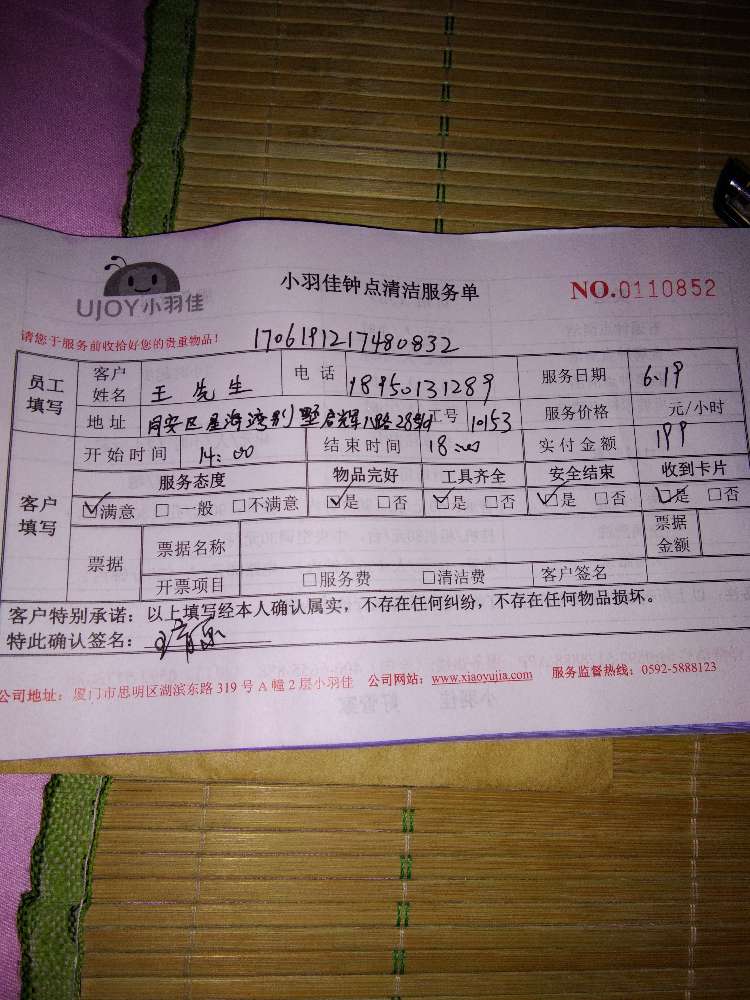 UJOY小羽佳
小羽佳钟点清洁服务单
NO.0110852
请您于服务前收拾好您的贵重物品!
1706191217480832
员工填写 客户姓名 王先生 电话 18950131289 服务日期 6.19
地址 同安区星海湾别墅启辉八路28号 工号 10153 服务价格 元/小时
客户填写 开始时间 14:00 结束时间 18:00 实付金额 199
服务态度 物品完好 工具齐全 安全结束 收到卡片
☑满意 □一般 □不满意 ☑是 □否 ☑是 □否 ☑是 □否 ☑是 □否
票据 票据名称 票据金额
开票项目 □服务费 □清洁费 客户签名
客户特别承诺:以上填写经本人确认属实,不存在任何纠纷,不存在任何物品损坏。
特此确认签名:
公司地址:厦门市思明区湖滨东路319号A幢2层小羽佳 公司网站:www.xiaoyujia.com 服务监督热线:0592-5888123